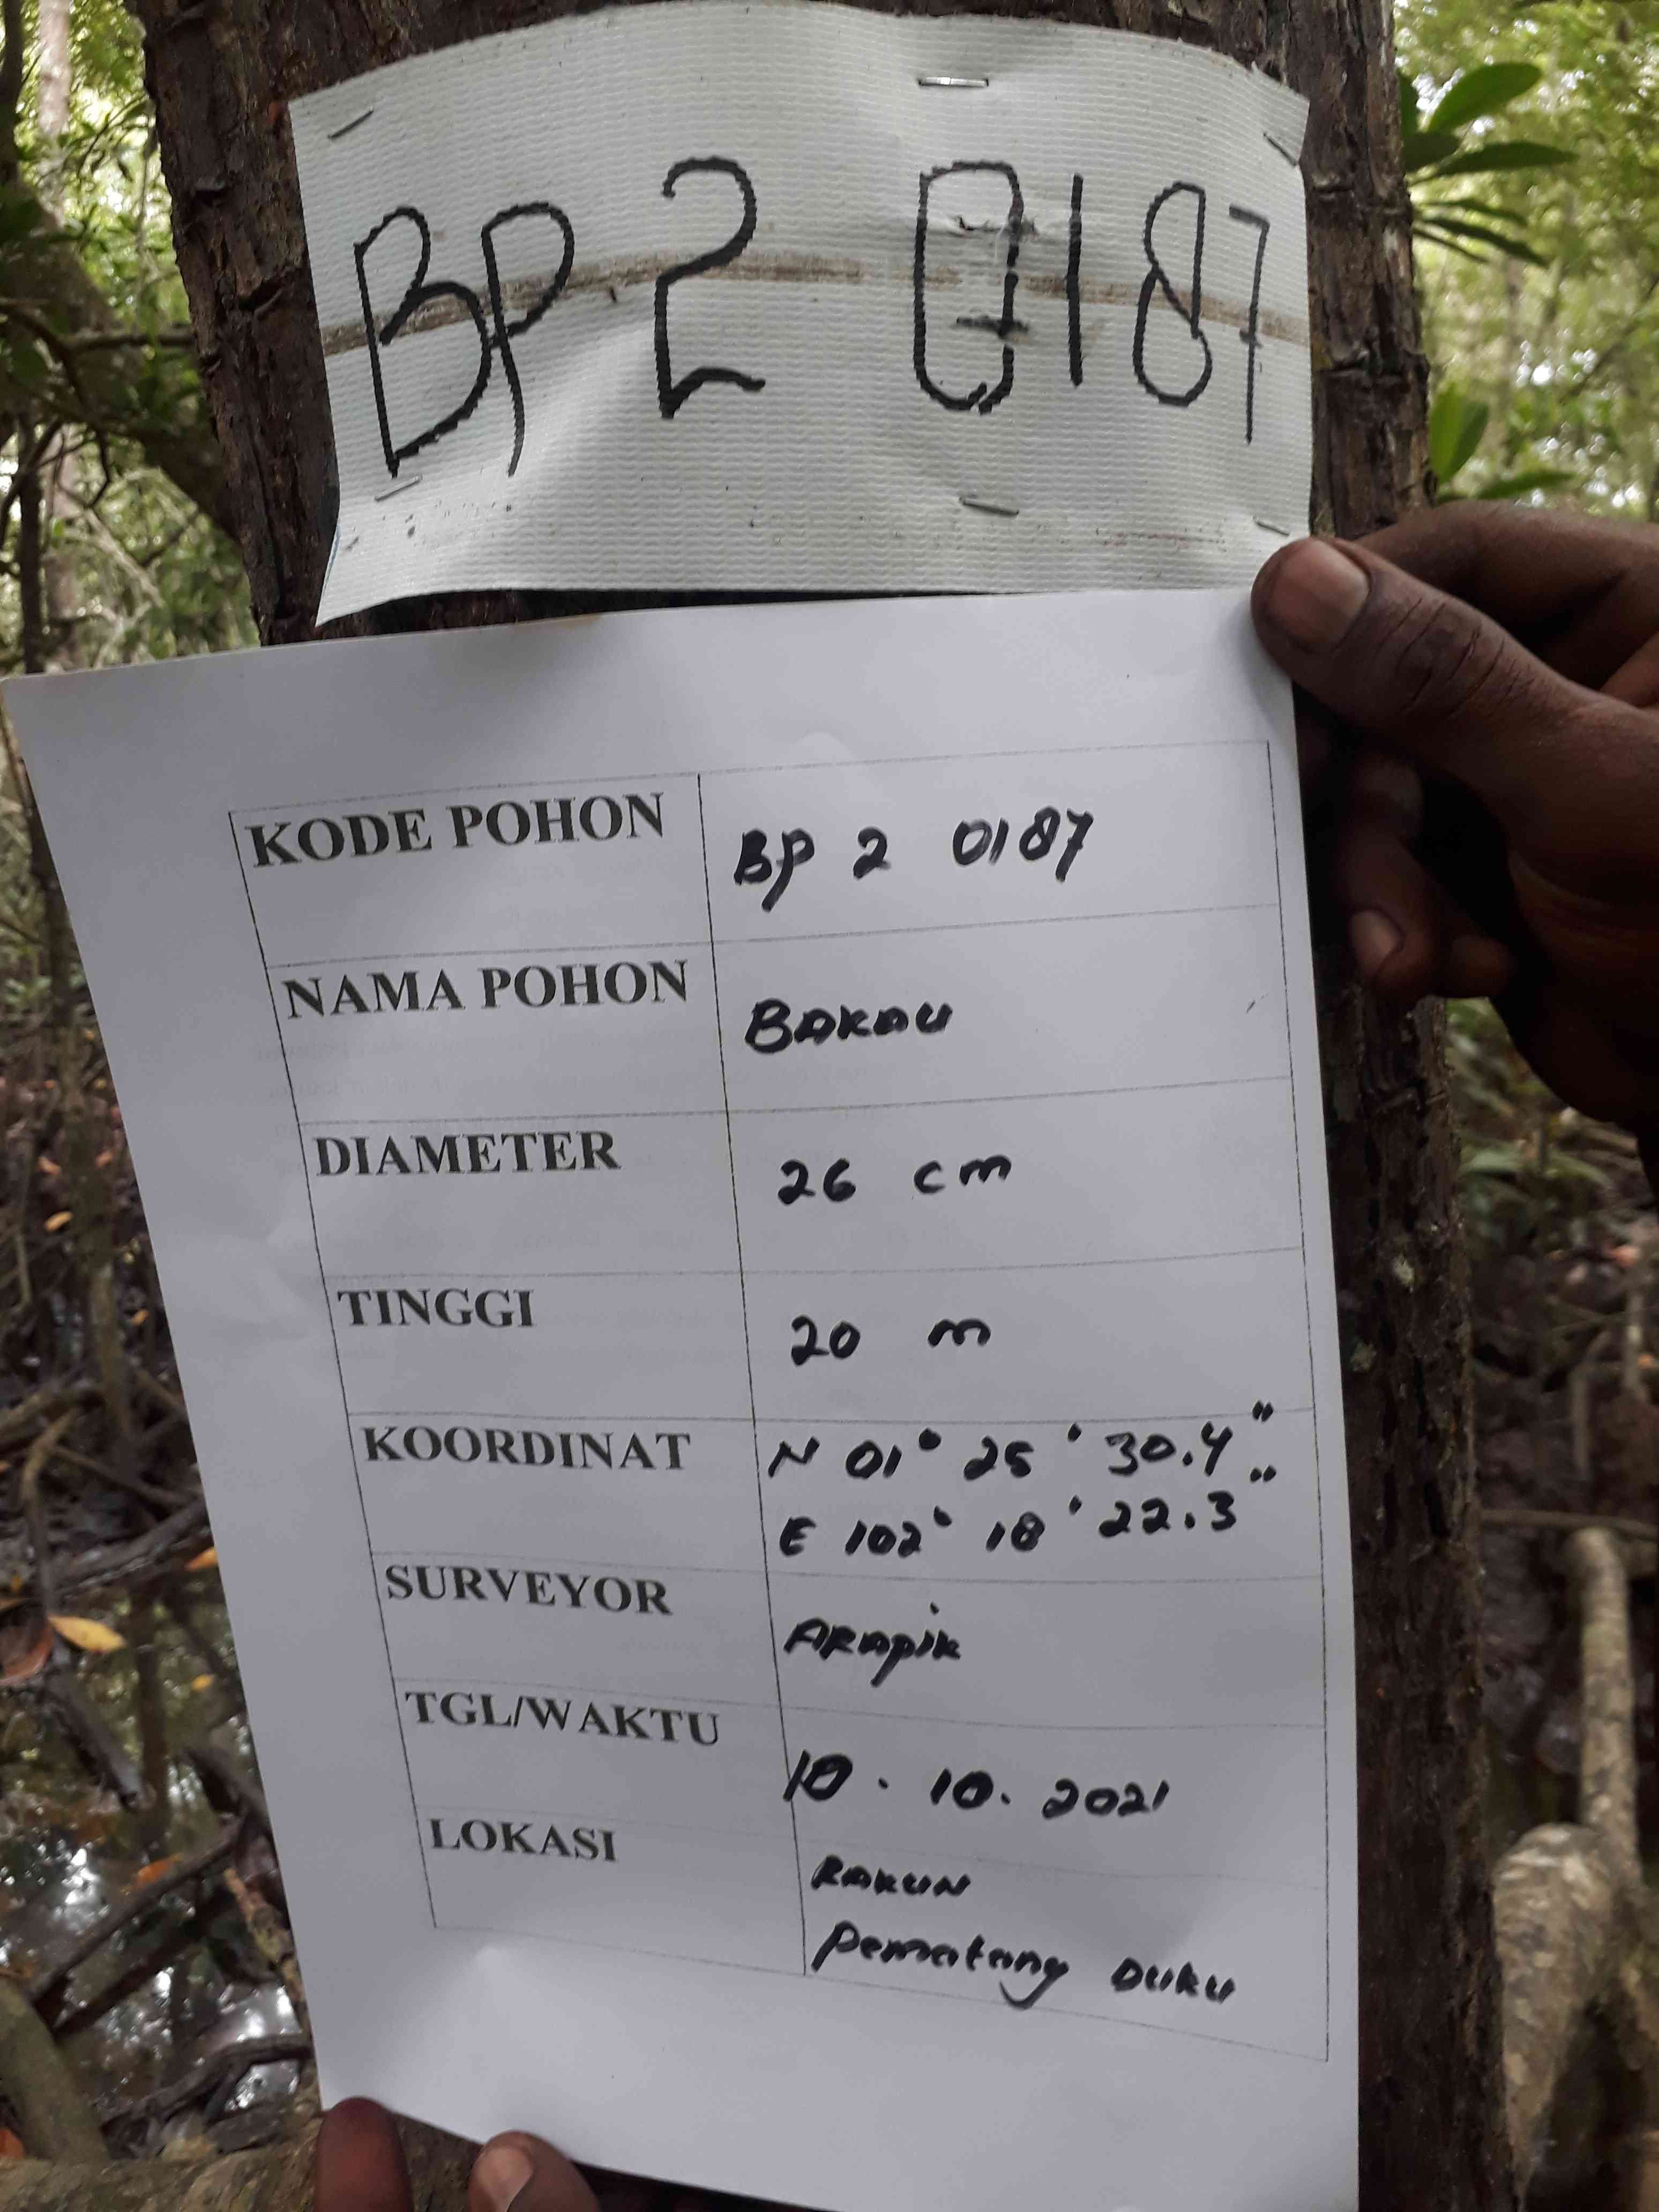 BP 2 0187
KODE POHON BP 2 0187
NAMA POHON BAKAU
DIAMETER 26 cm
TINGGI 20 m
KOORDINAT N 01° 25 ' 30.4 "
E 102° 18 ' 22.3 "
SURVEYOR ARApik
TGL/WAKTU 10 . 10. 2021
LOKASI RAKUN
Pematang DUKU